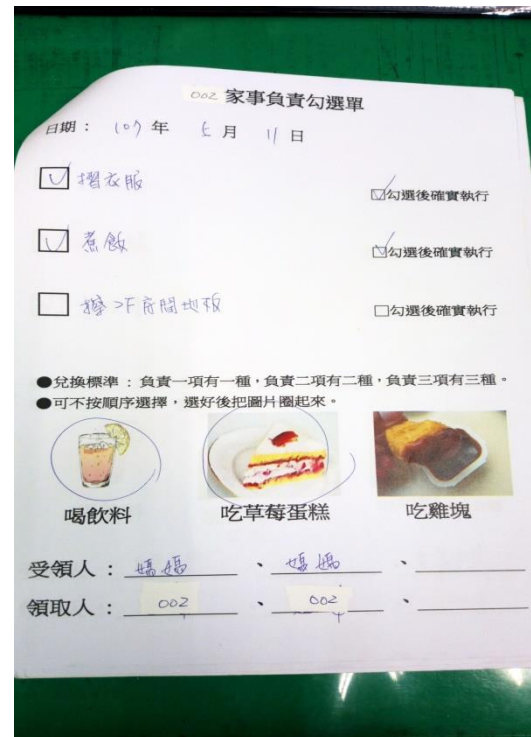 002 家事負責勾選單
日期: 107 年 5 月 11 日
☑ 摺衣服 ☑勾選後確實執行
☑ 煮飯 ☑勾選後確實執行
□ 擦2F房間地板 □勾選後確實執行
●兌換標準:負責一項有一種,負責二項有二種,負責三項有三種。
●可不按順序選擇,選好後把圖片圈起來。
喝飲料 吃草莓蛋糕 吃雞塊
受領人:媽媽、媽媽、
領取人:002、002、